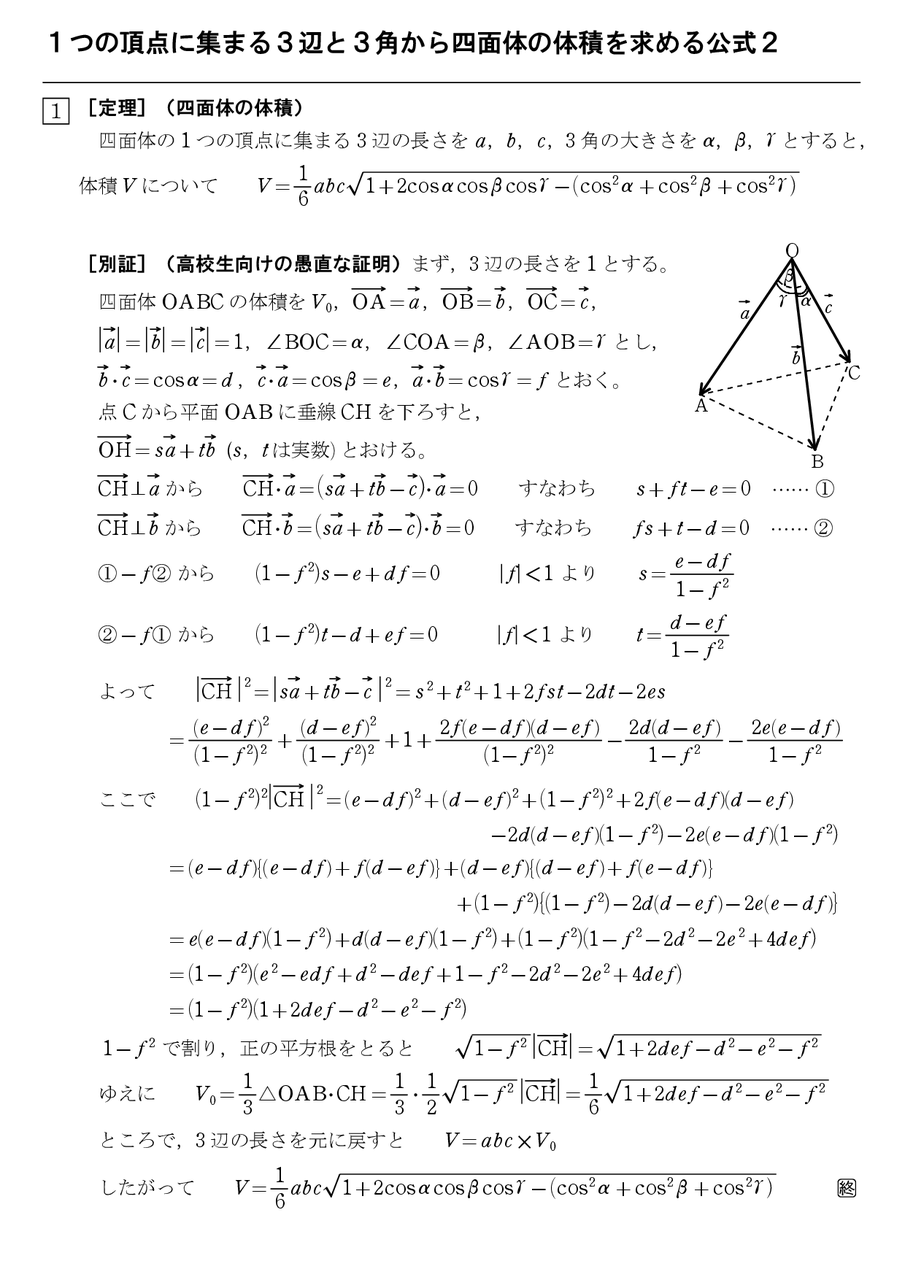 １つの頂点に集まる３辺と３角から四面体の体積を求める公式２
1 ［定理］（四面体の体積）
四面体の 1 つの頂点に集まる 3 辺の長さを a，b，c，3 角の大きさを α，β，γ とすると，
体積 V について V=\frac{1}{6}abc\sqrt{1+2cosαcosβcosγ−(cos²α+cos²β+cos²γ)}
［別証］（高校生向けの愚直な証明）まず，3 辺の長さを 1 とする。
四面体 OABC の体積を V₀，\overrightarrow{OA}=\vec{a}，\overrightarrow{OB}=\vec{b}，\overrightarrow{OC}=\vec{c}，
|\vec{a}|=|\vec{b}|=|\vec{c}|=1，∠BOC=α，∠COA=β，∠AOB=γ とし，
\vec{b}・\vec{c}=cosα=d，\vec{c}・\vec{a}=cosβ=e，\vec{a}・\vec{b}=cosγ=f とおく。
点 C から平面 OAB に垂線 CH を下ろすと，
\overrightarrow{OH}=s\vec{a}+t\vec{b} (s，t は実数) とおける。
O
β
γ α
\vec{a} \vec{c}
\vec{b}
C
A
B
\overrightarrow{CH}⊥\vec{a} から \overrightarrow{CH}・\vec{a}=(s\vec{a}+t\vec{b}−\vec{c})・\vec{a}=0 すなわち s+ft−e=0 …… ①
\overrightarrow{CH}⊥\vec{b} から \overrightarrow{CH}・\vec{b}=(s\vec{a}+t\vec{b}−\vec{c})・\vec{b}=0 すなわち fs+t−d=0 …… ②
①−f② から (1−f²)s−e+df=0 |f|<1 より s=\frac{e−df}{1−f²}
②−f① から (1−f²)t−d+ef=0 |f|<1 より t=\frac{d−ef}{1−f²}
よって |\overrightarrow{CH}|²=|s\vec{a}+t\vec{b}−\vec{c}|²=s²+t²+1+2fst−2dt−2es
=\frac{(e−df)²}{(1−f²)²}+\frac{(d−ef)²}{(1−f²)²}+1+\frac{2f(e−df)(d−ef)}{(1−f²)²}−\frac{2d(d−ef)}{1−f²}−\frac{2e(e−df)}{1−f²}
ここで (1−f²)²|\overrightarrow{CH}|²=(e−df)²+(d−ef)²+(1−f²)²+2f(e−df)(d−ef)
−2d(d−ef)(1−f²)−2e(e−df)(1−f²)
=(e−df){(e−df)+f(d−ef)}+(d−ef){(d−ef)+f(e−df)}
+(1−f²){(1−f²)−2d(d−ef)−2e(e−df)}
=e(e−df)(1−f²)+d(d−ef)(1−f²)+(1−f²)(1−f²−2d²−2e²+4def)
=(1−f²)(e²−edf+d²−def+1−f²−2d²−2e²+4def)
=(1−f²)(1+2def−d²−e²−f²)
1−f² で割り，正の平方根をとると \sqrt{1−f²}|\overrightarrow{CH}|=\sqrt{1+2def−d²−e²−f²}
ゆえに V₀=\frac{1}{3}△OAB・CH=\frac{1}{3}・\frac{1}{2}\sqrt{1−f²}|\overrightarrow{CH}|=\frac{1}{6}\sqrt{1+2def−d²−e²−f²}
ところで，3 辺の長さを元に戻すと V=abc×V₀
したがって V=\frac{1}{6}abc\sqrt{1+2cosαcosβcosγ−(cos²α+cos²β+cos²γ)} 終